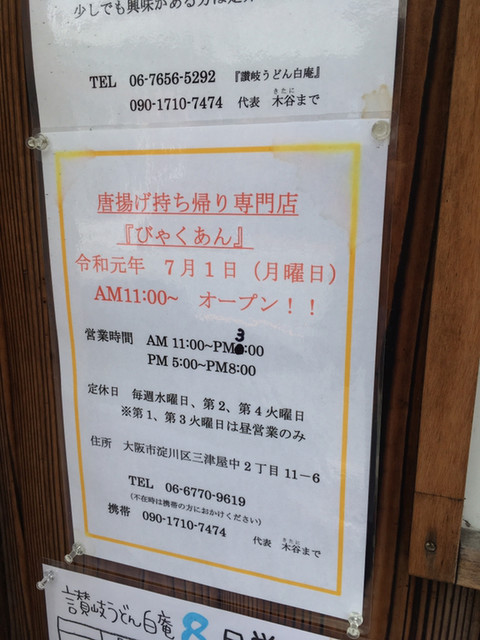 少しでも興味がある方は是
TEL 06-7656-5292 『讃岐うどん白庵』
090-1710-7474 代表 木谷まで
きたに
唐揚げ持ち帰り専門店
『びゃくあん』
令和元年 7月1日(月曜日)
AM11:00~ オープン!!
営業時間 AM 11:00~PM3:00
PM 5:00~PM8:00
定休日 毎週水曜日、第2、第4火曜日
※第1、第3火曜日は昼営業のみ
住所 大阪市淀川区三津屋中2丁目11-6
TEL 06-6770-9619
(不在時は携帯の方におかけください)
携帯 090-1710-7474 代表 木谷まで
きたに
讃岐うどん白庵 8月営